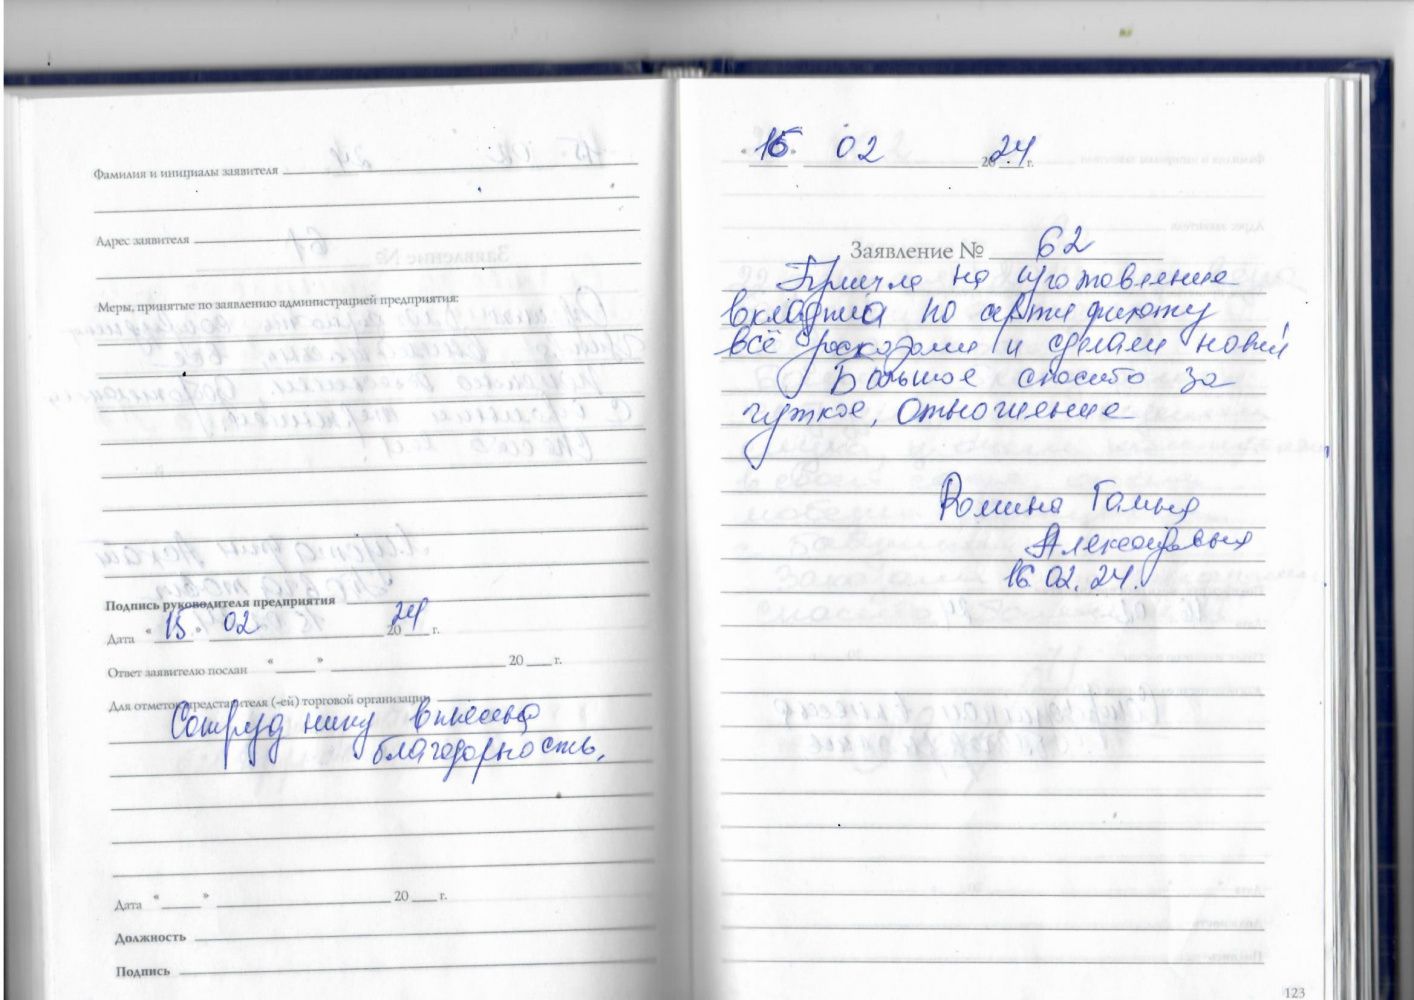 Фамилия и инициалы заявителя
Адрес заявителя
Меры, принятые по заявлению администрацией предприятия:
Подпись руководителя предприятия
Дата "15" 02 2024 г.
Ответ заявителю послан " " 20 г.
Для отметок представителя (-ей) торговой организации
Сотруднику внесена
благодарность.
Дата " " 20 г.
Должность
Подпись
"16" 02 2024 г.
Заявление № 62
Пришла на изготовление
вкладыша по сертификату
всё рассказали и сделали новый
Большое спасибо за
чуткое, отношение
Галина
16.02.24.
123